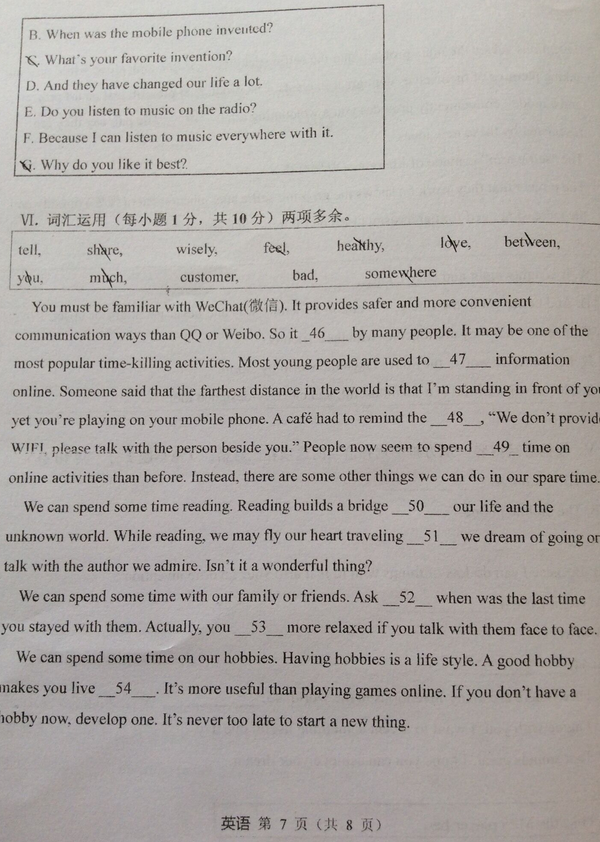 B. When was the mobile phone invented?
C. What's your favorite invention?
D. And they have changed our life a lot.
E. Do you listen to music on the radio?
F. Because I can listen to music everywhere with it.
G. Why do you like it best?
VI. 词汇运用（每小题 1 分，共 10 分）两项多余。
tell, share, wisely, feel, healthy, love, between,
you, much, customer, bad, somewhere
You must be familiar with WeChat(微信). It provides safer and more convenient
communication ways than QQ or Weibo. So it _46___ by many people. It may be one of the
most popular time-killing activities. Most young people are used to __47___ information
online. Someone said that the farthest distance in the world is that I'm standing in front of you
yet you're playing on your mobile phone. A café had to remind the __48__, “We don't provid
WIFI, please talk with the person beside you.” People now seem to spend __49_ time on
online activities than before. Instead, there are some other things we can do in our spare time.
We can spend some time reading. Reading builds a bridge __50___ our life and the
unknown world. While reading, we may fly our heart traveling __51__ we dream of going or
talk with the author we admire. Isn't it a wonderful thing?
We can spend some time with our family or friends. Ask __52__ when was the last time
you stayed with them. Actually, you __53__ more relaxed if you talk with them face to face.
We can spend some time on our hobbies. Having hobbies is a life style. A good hobby
makes you live __54___. It's more useful than playing games online. If you don't have a
hobby now, develop one. It's never too late to start a new thing.
英语 第 7 页（共 8 页）